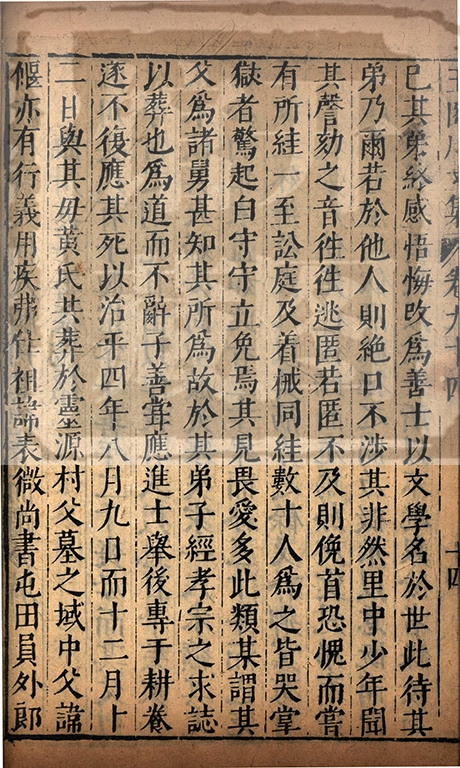 王臨川文集 卷九十四 十四
已其弟終感悟悔改爲善士以文學名於世此待其
弟乃爾若於他人則絶口不涉其非然里中少年聞
其謦欬之音徃徃逃匿若匿不及則俛首恐愧而嘗
有所絓一至訟庭及着械同絓數十人爲之皆哭掌
獄者驚起白守守立免焉其見畏愛多此類某謂其
父爲諸舅甚知其所爲故於其弟子經孝宗之求誌
以葬也爲道而不辭子善甞應進士舉後專于耕養
遂不復應其死以治平四年八月九日而十二月十
二日與其母黃氏共葬於靈源村父墓之域中父諱
偃亦有行義用疾弗仕祖諱表微尚書屯田員外郎